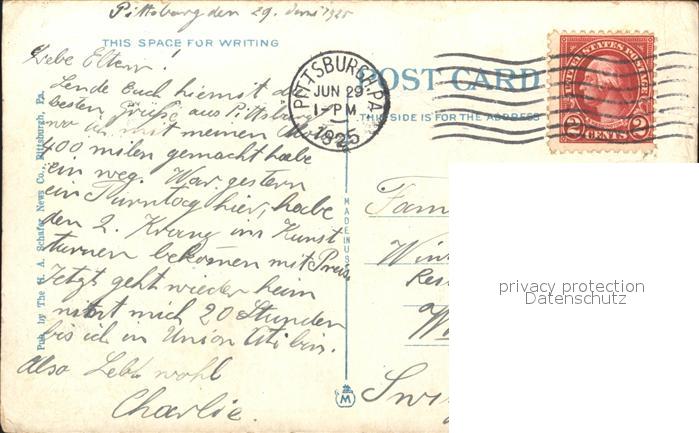 Pittsburg den 29. Juni 1925
THIS SPACE FOR WRITING
Liebe Eltern!
Sende Euch hiermit d
besten Grüße aus Pittsburg
wo ich mit meinem
400 milen gemacht habe
ein weg. War gestern
ein Turntag hier, habe
den 2. Kranz im Kunst
turnen bekomen mit Preis
Jetzt geht wieder heim
nimt mich 20 Stunden
bis ich in Union Citi bin.
Also Lebt wohl
Charlie.
Pub. by The H. A. Schafer News Co., Pittsburgh, Pa.
MADE IN USA
M
POST CARD
THIS SIDE IS FOR THE ADDRESS
PITTSBURGH, PA.
JUN 29
1-PM
1925
UNITED STATES POSTAGE
2 CENTS 2
Fam
Win
Swi
privacy protection
Datenschutz